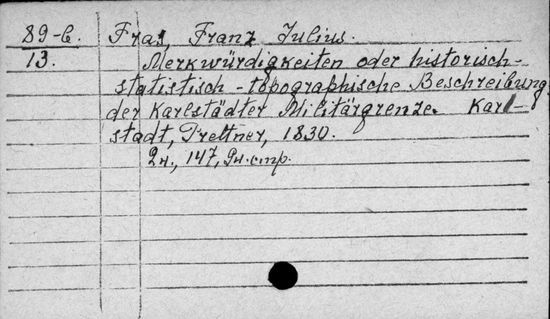 89-b. Fras, Franz Julius.
13. Merkwürdigkeiten oder historisch-
statistisch-topographische Beschreibung
der Karlstädter Militärgrenze. Karl-
stadt, Prettner, 1830.
2н., 147, 9н. стр.